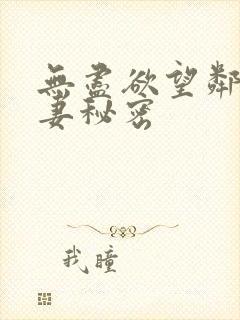 無盡欲望鄰
妻秘密
我瞳